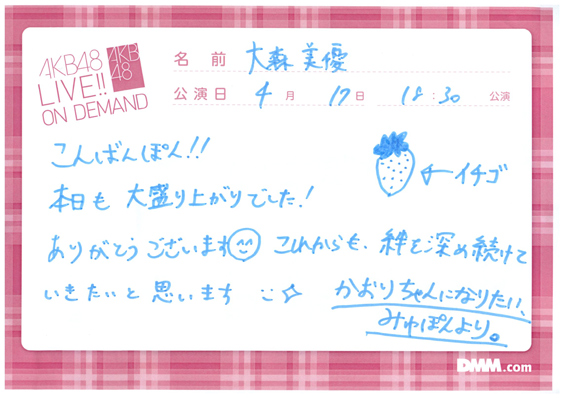 AKB48
LIVE!!
ON DEMAND
AKB
48
名前 大森美優
公演日 4月 17日 18:30 公演
こんばんぽん!!
本日も 大盛り上がりでした!
←イチゴ
ありがとうございます これからも、絆を深め続けて
いきたいと思います
かおりちゃんになりたい、
みゅぽんより。
DMM.com